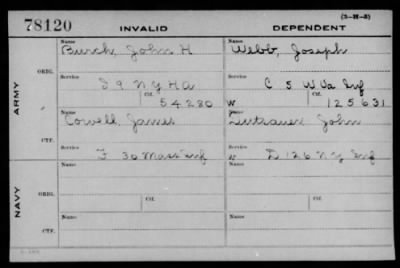 (3-H-3)
78120 INVALID DEPENDENT
ARMY
ORIG.
Name Burch, John H Name Webb, Joseph
Service I 9 N Y H A Service C 5 W Va Inf
Ctf. 54280 W Ctf. 125631
CTF.
Name Cowell, James Name John
Service F 30 Mass Inf Service W D 126 N Y Inf
NAVY
ORIG.
Name Ctf. Name Ctf.
Service Service
CTF.
Name Name